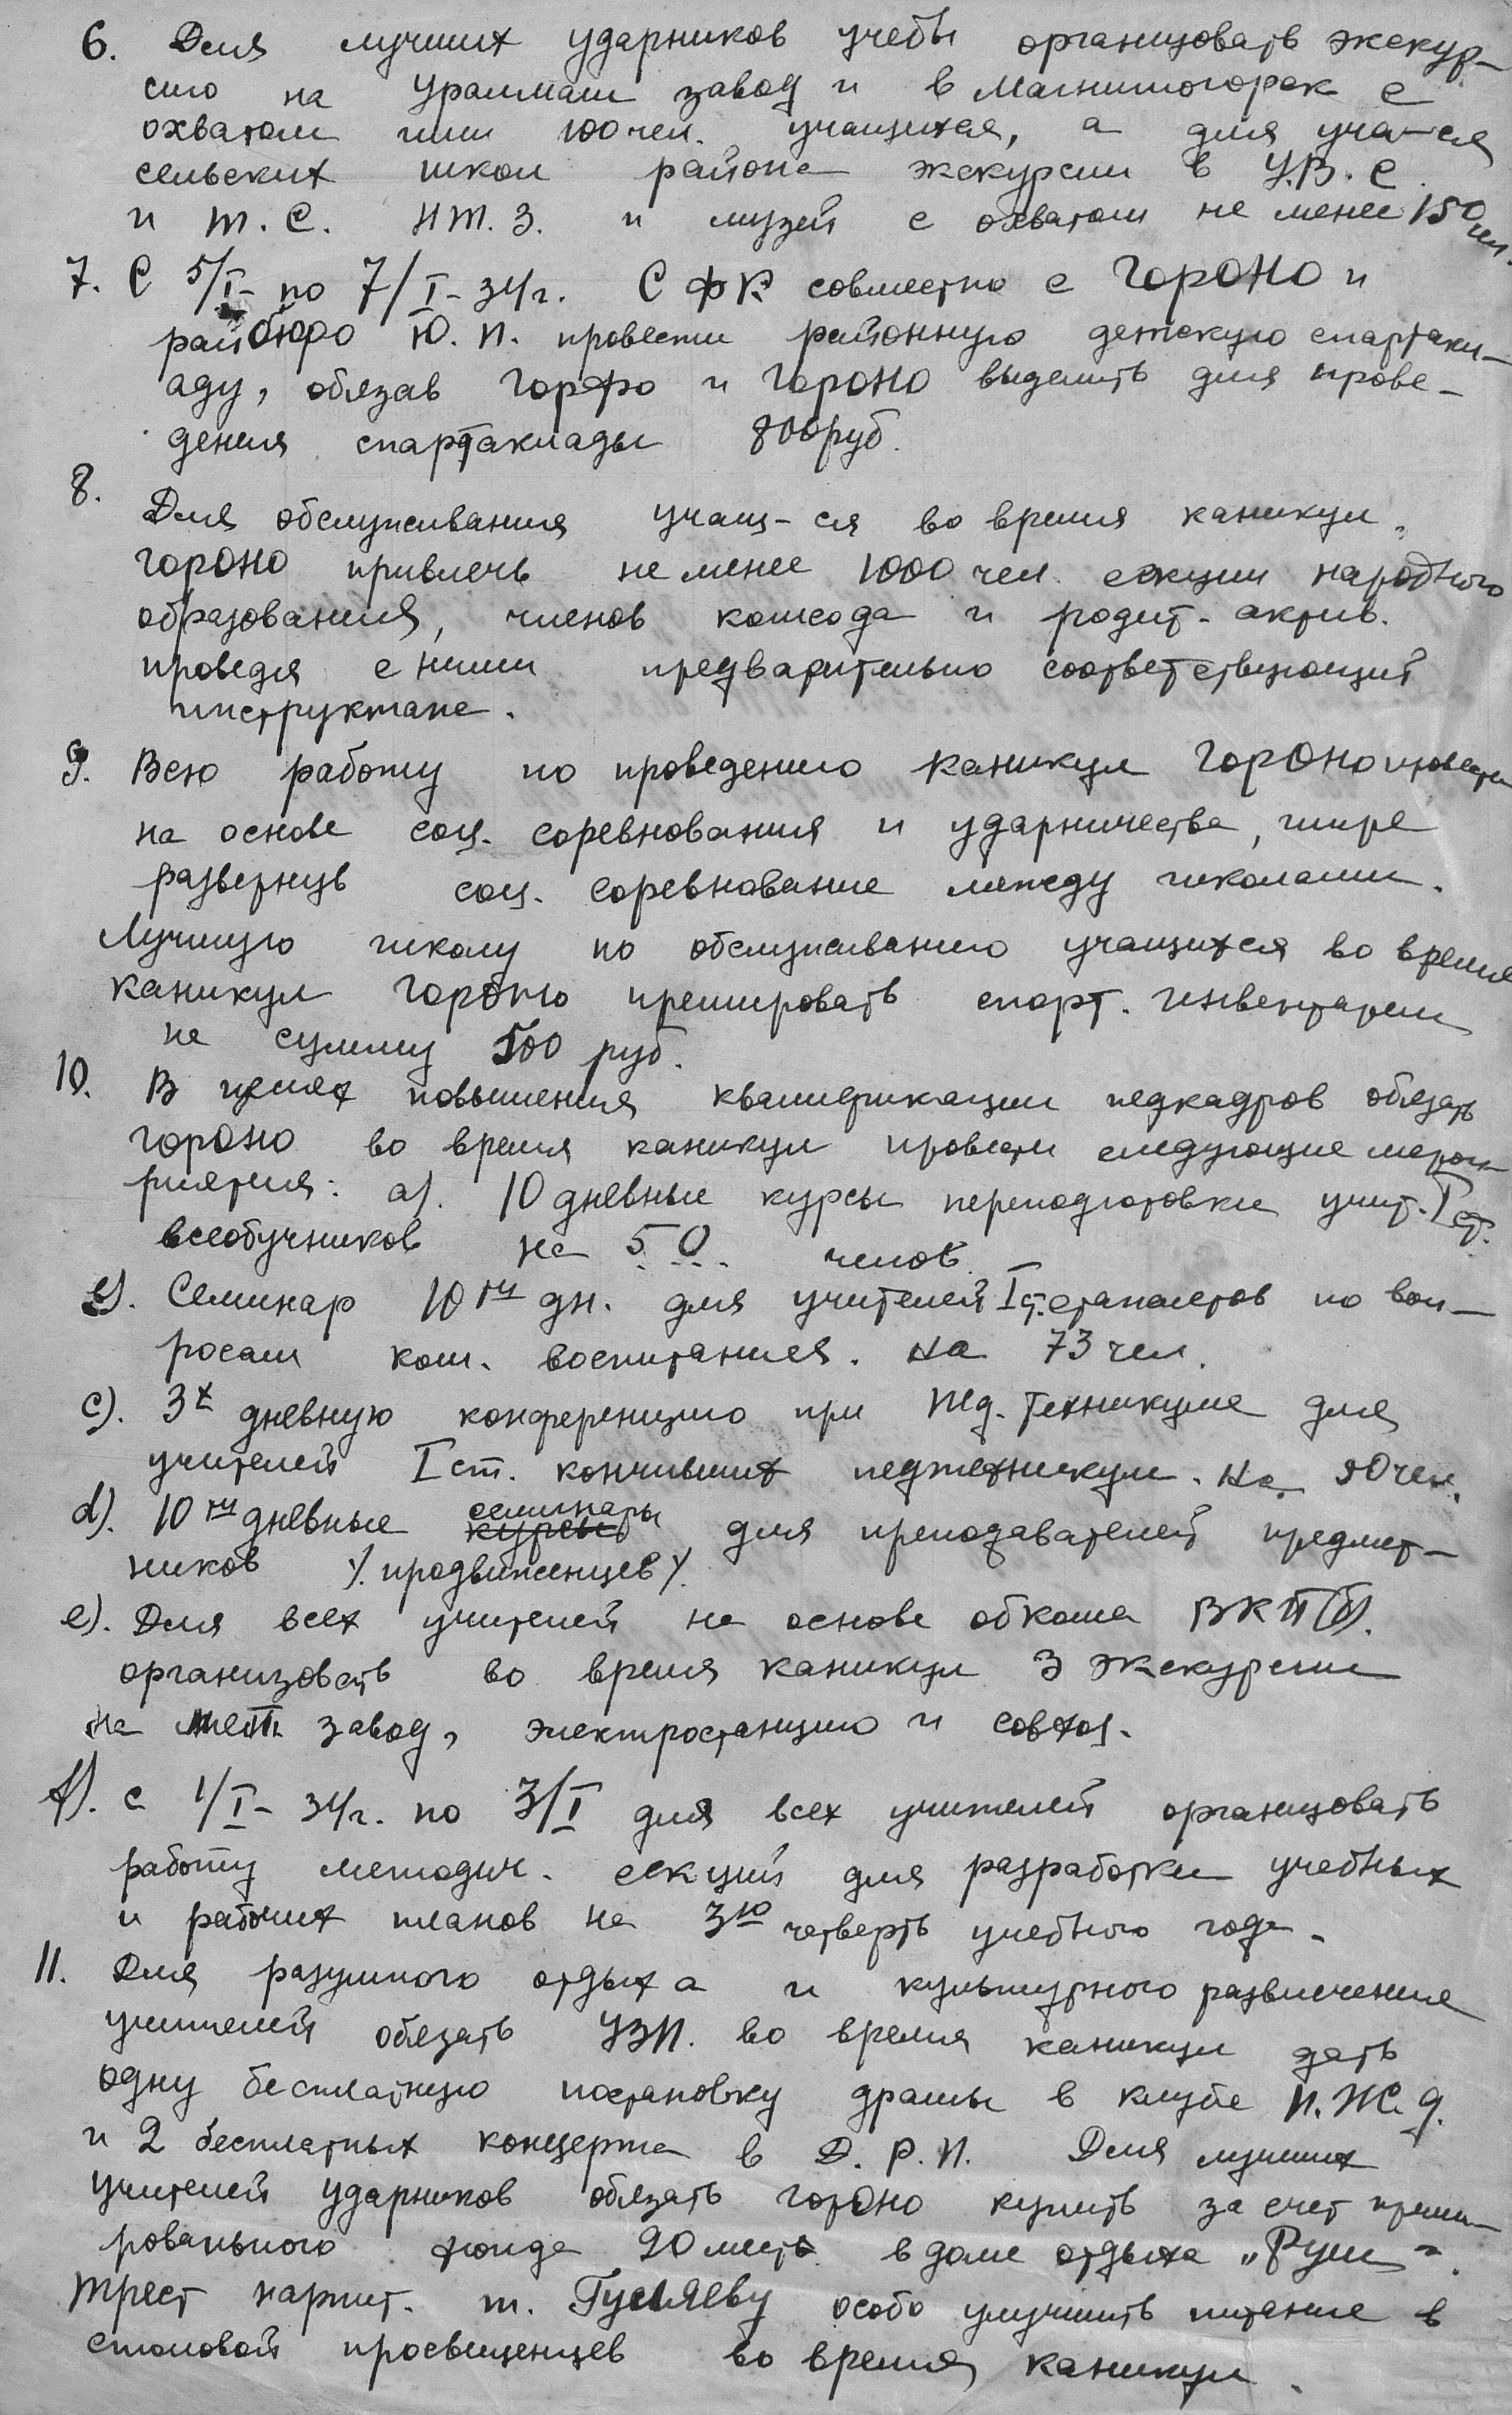 6. Для лучших ударников учебы организовать экскур-
сию на Уралмаш завод и в Магнитогорск с
охватом ими 100 чел. учащихся, а для уча-ся
сельских школ района экскурсии в У.В.С.
и т.С. Н.Т.З. и музей с охватом не менее 150 чел.
7. С 5/I- по 7/I-34г. СФК совместно с ГорОНО и
райбюро Ю.П. провести районную детскую спартаки-
аду, обязав Горфо и ГорОНО выделить для прове-
дения спартакиады 800 руб.
8.
Для обслуживания учащ-ся во время каникул
ГорОНО привлечь не менее 1000 чел. секции народного
образования, членов комсода и родит. актив.
проведя с ними предварительно соответствующий
инструктаж.
9. Всю работу по проведению каникул ГорОНО провести
на основе соц. соревнования и ударничества, шире
развернув соц. соревнование между школами.
Лучшую школу по обслуживанию учащихся во время
каникул ГорОНО премировать спорт. инвентарем
на сумму 500 руб.
10. В целях повышения квалификации педкадров обязать
ГорОНО во время каникул провести следующие мероп-
риятия: а). 10 дневные курсы переподготовки учит. I ст.
всеобучников на 50 челов.
в). Семинар 10ти дн. для учителей I ст. стажистов по воп-
росам ком. воспитания. на 73 чел.
с). 3х дневную конференцию при Пед. техникуме для
учителей I ст. кончивших педтехникум. на 90 чел.
d). 10ти дневные курсы семинары для преподавателей предмет-
ников /.продвиженцев/.
е). Для всех учителей на основе обкома ВКП(б).
организовать во время каникул 3 экскурсии
на мет. завод, электростанцию и совхоз.
f). с 1/I-34г. по 3/I для всех учителей организовать
работу методич. секций для разработки учебных
и рабочих планов на 3ю четверть учебного года.
11. Для разумного отдыха и культурного развлечения
учителей обязать УЗП. во время каникул дать
одну бесплатную постановку драмы в клубе П.Ж.д.
и 2 бесплатных концерта в Д.Р.П. Для лучших
учителей ударников обязать ГорОНО купить за счет преми-
ровального фонда 20 мест в доме отдыха „Руш".
Трест нарпит. т. Гусляеву особо улучшить питание в
столовой просвещенцев во время каникул.